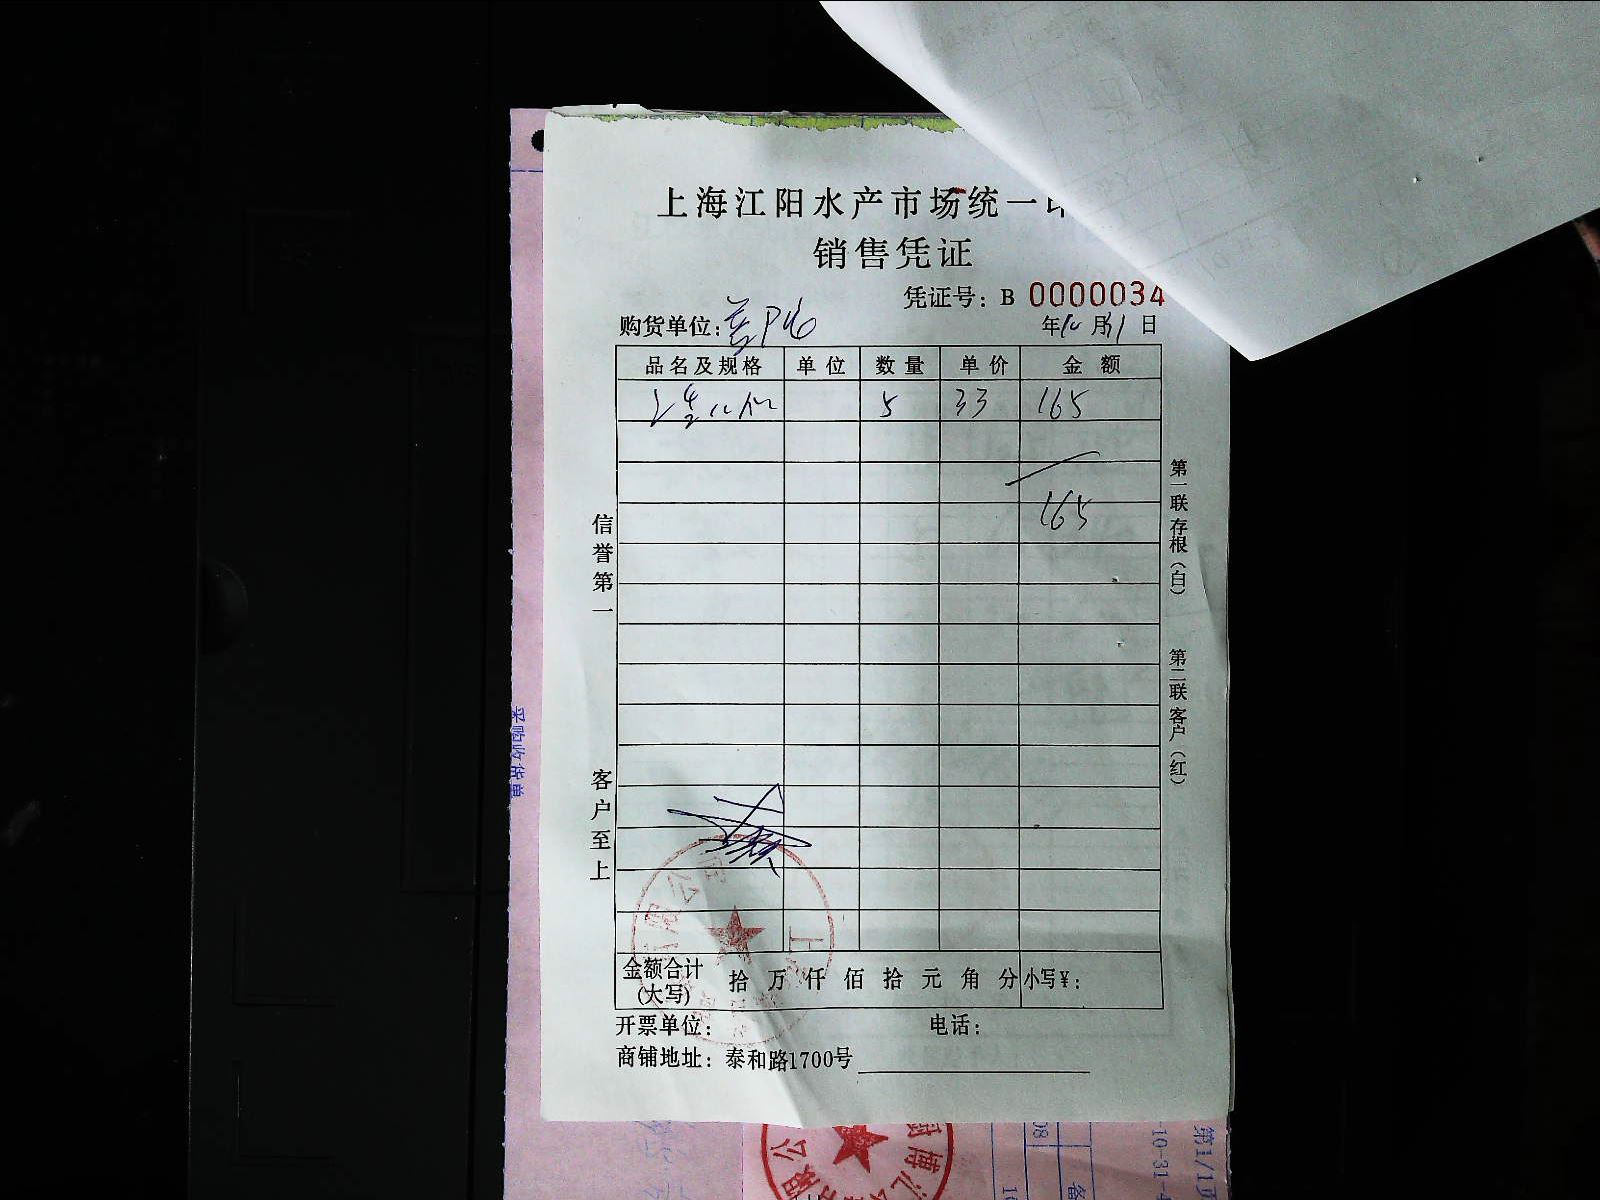 上海江阳水产市场统一
销售凭证
凭证号：B 0000034
购货单位：
年10月31日
品名及规格 单位 数量 单价 金额
5 33 165
165
信誉第一
客户至上
第一联存根（白）
第二联客户（红）
金额合计(大写) 拾 万 仟 佰 拾 元 角 分 小写¥：
开票单位： 电话：
商铺地址：泰和路1700号
采购收货单
限公司
上
10-31
第1/1页